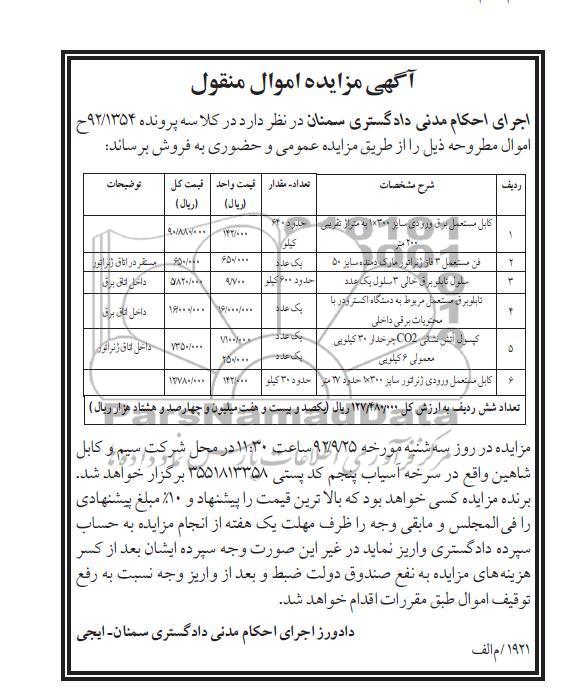 آگهی مزایده اموال منقول
اجرای احکام مدنی دادگستری سمنان در نظر دارد در کلاسه پرونده ۹۲/۱۳۵۴ح
اموال مطروحه ذیل را از طریق مزایده عمومی و حضوری به فروش برساند:
ردیف شرح مشخصات تعداد-مقدار قیمت واحد (ریال) قیمت کل (ریال) توضیحات
۱ کابل مستعمل برق ورودی سایز ۳۰۰×۱ به متراژ تقریبی ۲۰۰ متر حدود ۶۴۰ کیلو ۱۴۲/۰۰۰ ۹۰/۸۸۰/۰۰۰
۲ فن مستعمل ۳ فاز ژنراتور مارک دمنده سایز ۵۰ یک عدد ۶۵۰/۰۰۰ ۶۵۰/۰۰۰ مستقر در اتاق ژنراتور
۳ سلول تابلو برق خالی ۳ سلول یک عدد حدود ۶۰۰ کیلو ۹/۷۰۰ ۵/۸۲۰/۰۰۰ داخل اتاق برق
۴ تابلو برق مستعمل مربوط به دستگاه اکسترودر با محتویات برقی داخلی یک عدد ۱۶/۰۰۰/۰۰۰ ۱۶/۰۰۰/۰۰۰ داخل اتاق برق
۵ کپسول آتش نشانی CO2 چرخدار ۳۰ کیلویی یک عدد ۱/۱۰۰/۰۰۰ ۱/۳۵۰/۰۰۰ داخل اتاق ژنراتور
معمولی ۶ کیلویی یک عدد ۲۵۰/۰۰۰
۶ کابل مستعمل ورودی ژنراتور سایز ۳۰۰×۱ حدود ۲۷ متر حدود ۳۰ کیلو ۱۴۲/۰۰۰ ۱۲/۷۸۰/۰۰۰
تعداد شش ردیف به ارزش کل ۱۲۷/۴۸۰/۰۰۰ ریال (یکصد و بیست و هفت میلیون و چهارصد و هشتاد هزار ریال)
مزایده در روز سه شنبه مورخه ۹۲/۹/۲۵ ساعت ۱۱:۳۰ در محل شرکت سیم و کابل
شاهین واقع در سرخه آسیاب پنجم کد پستی ۳۵۵۱۸۱۳۳۵۸ برگزار خواهد شد.
برنده مزایده کسی خواهد بود که بالاترین قیمت را پیشنهاد و ۱۰٪ مبلغ پیشنهادی
را فی المجلس و مابقی وجه را ظرف مهلت یک هفته از انجام مزایده به حساب
سپرده دادگستری واریز نماید در غیر این صورت وجه سپرده ایشان بعد از کسر
هزینه‌های مزایده به نفع صندوق دولت ضبط و بعد از واریز وجه نسبت به رفع
توقیف اموال طبق مقررات اقدام خواهد شد.
دادورز اجرای احکام مدنی دادگستری سمنان- ایجی
۱۹۲۱/م الف
ParsNamadData